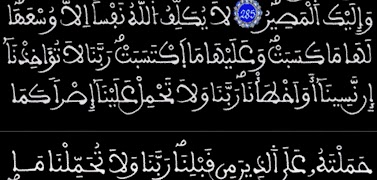 وَإِلَيْكَ اَ۬لْمَصِيرُ 285 لَا يُكَلِّفُ اُ۬للَّهُ نَفْساً إِلَّا وُسْعَهَا
لَهَا مَا كَسَبَتْ وَعَلَيْهَا مَا اَ۪كْتَسَبَتْ رَبَّنَا لَا تُؤَاخِذْنَا
إِن نَّسِينَا أَوَ اَخْطَأْنَا رَبَّنَا وَلَا تَحْمِلْ عَلَيْنَا إِصْراً كَمَا
حَمَلْتَهُۥ عَلَى اَ۬لذِينَ مِن قَبْلِنَا رَبَّنَا وَلَا تُحَمِّلْنَا مَا